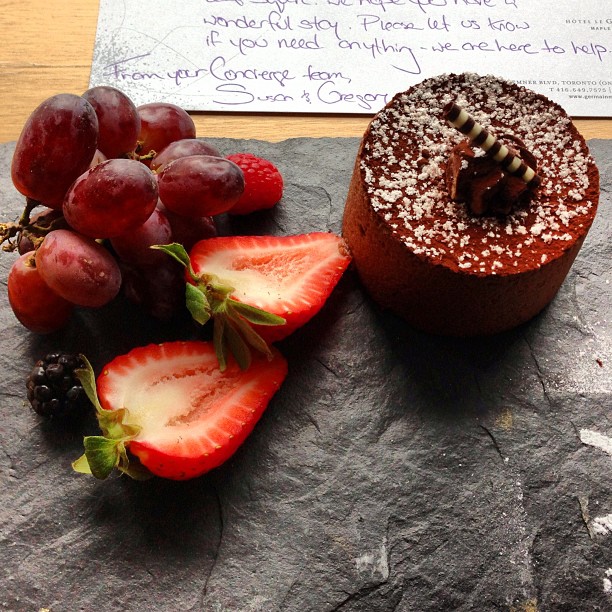 hope you have a
wonderful stay. Please let us know
if you need anything - we are here to help
From your Concierge team,
Susan & Gregory
HÔTEL LE G
MAPLE
MNER BLVD, TORONTO (ON
T 416.649.7575
www.germain